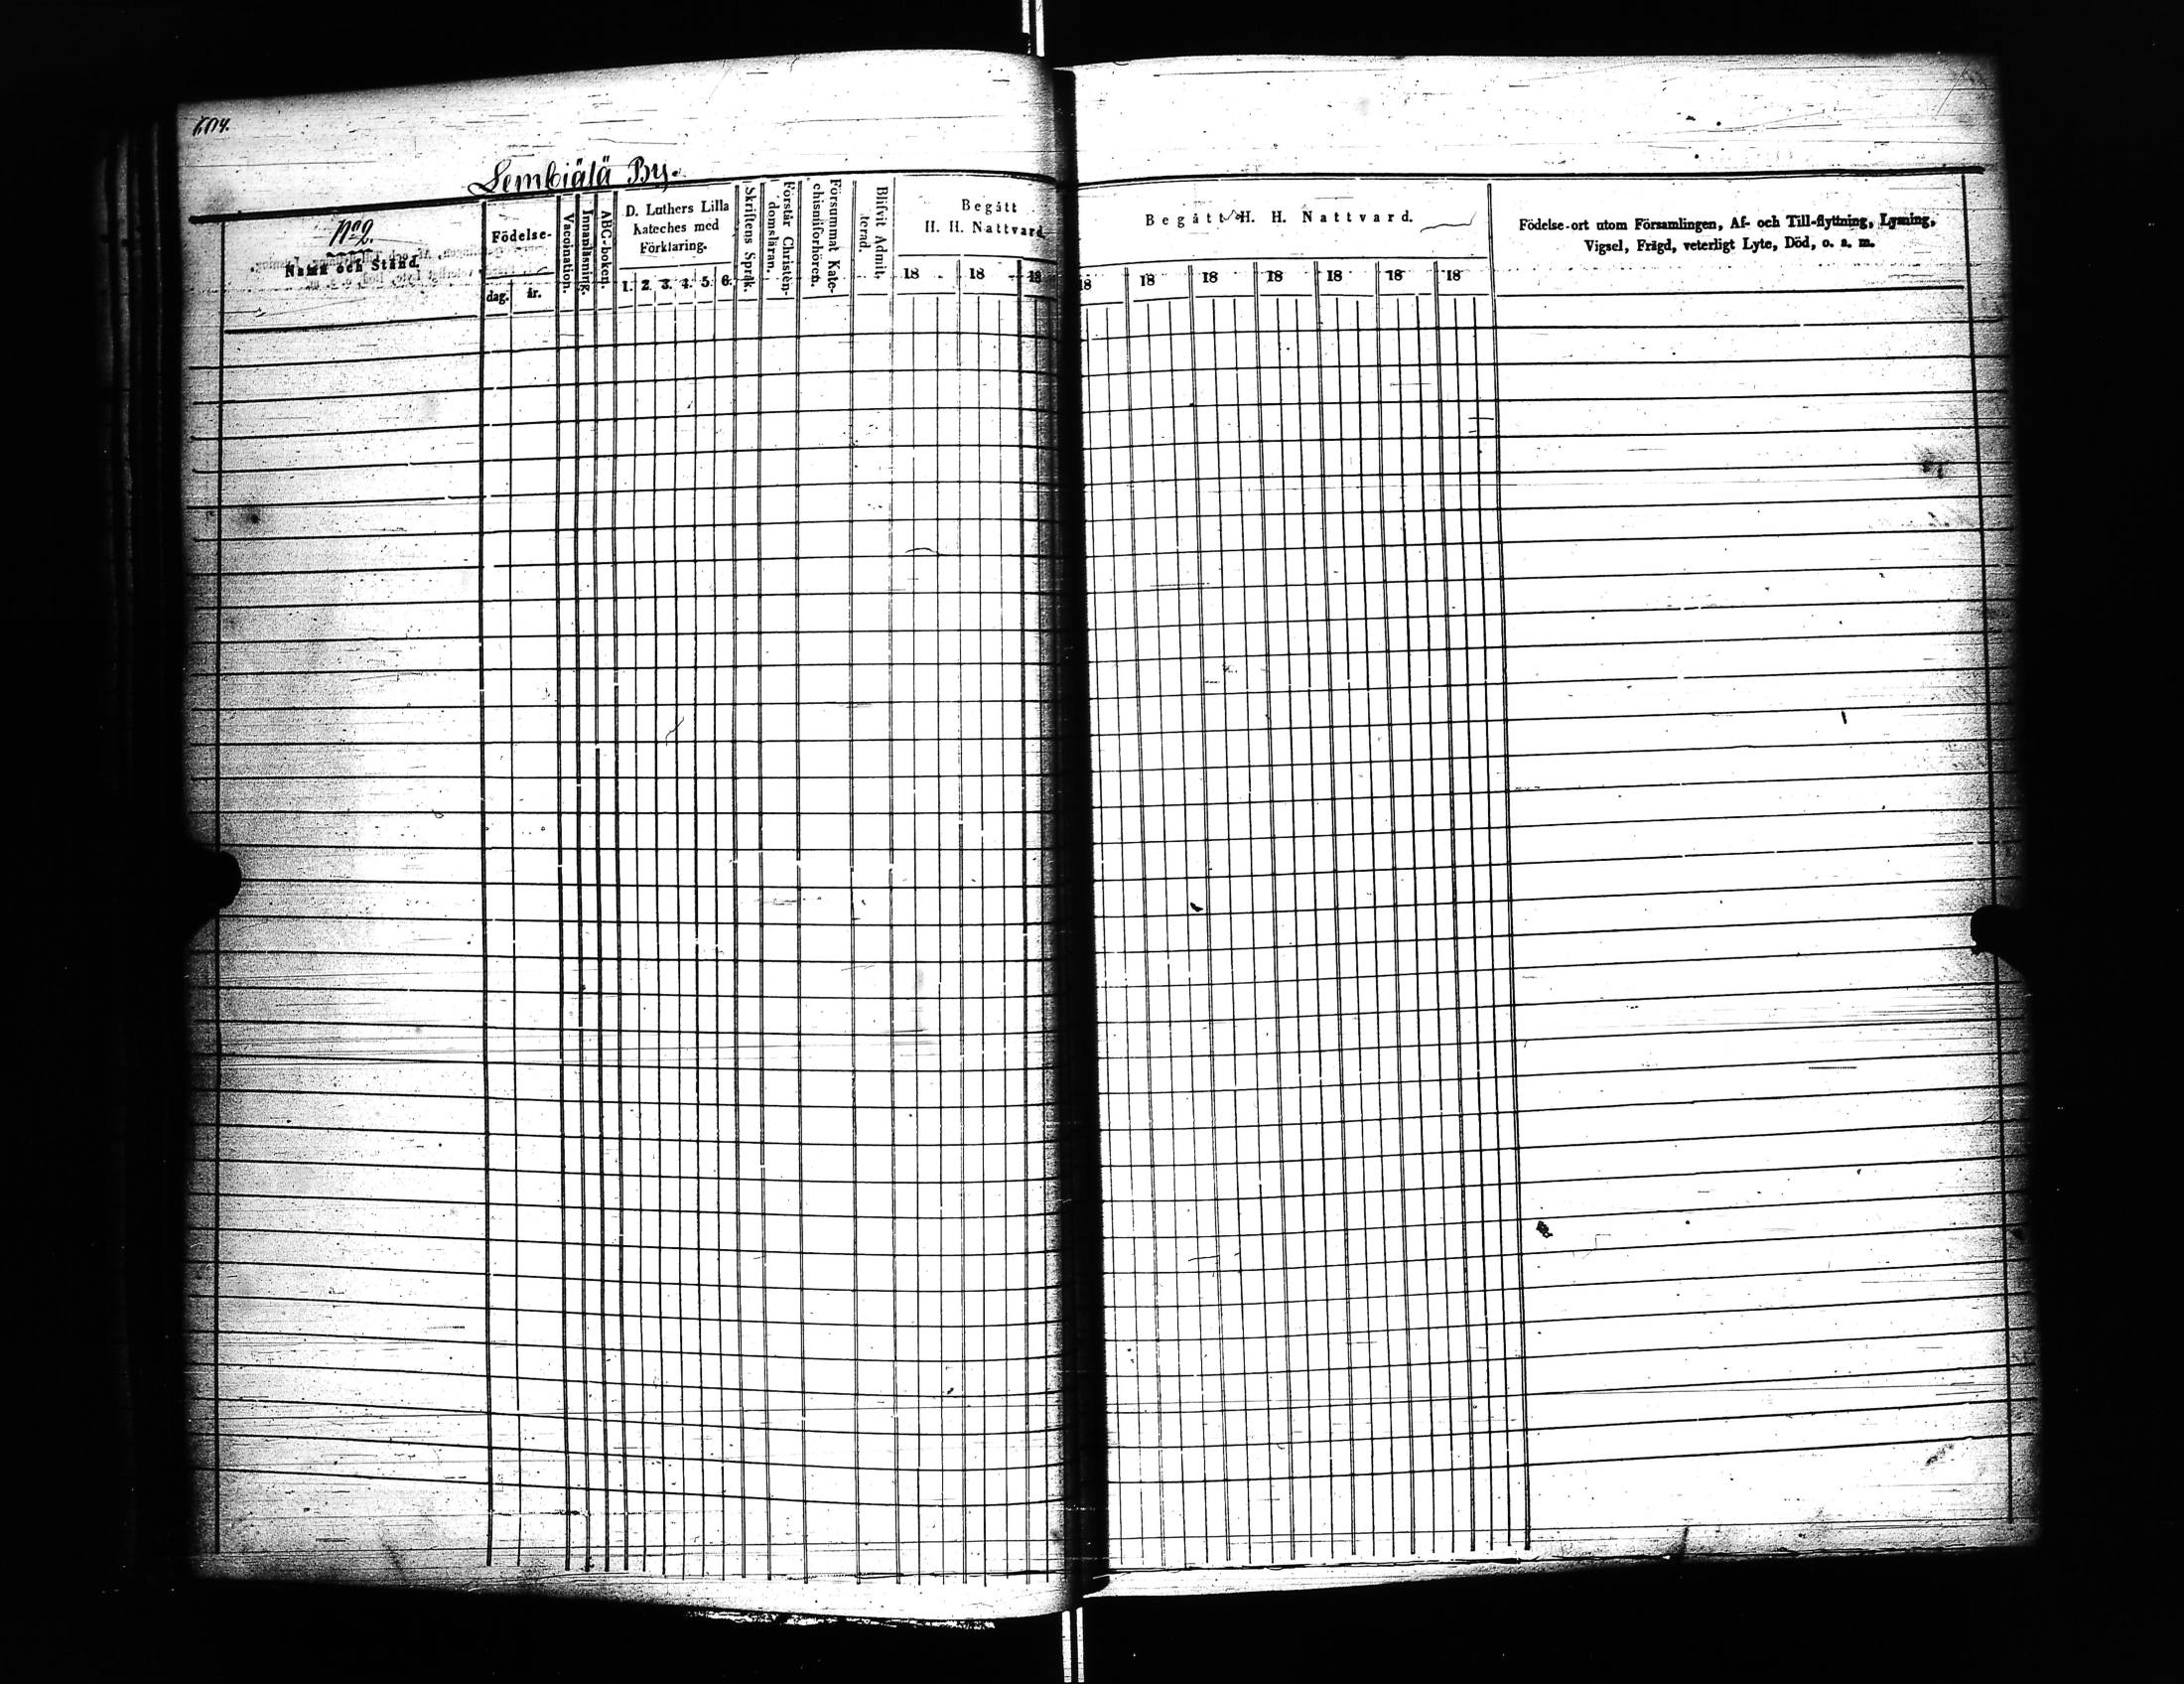 Lembiälä By.
No 2.
Namn och Stånd.
Födelse-
dag.
år.
Vaccination.
Innanläsning.
ABC-boken.
D. Luthers Lilla
Kateches med
Förklaring.
1. 2. 3. 4. 5. 6.
Skriftens Språk.
Förstår Christen-
domsläran.
Försummat Kate-
chismiförhören.
Blifvit Admit-
terad.
Begått
H. H. Nattvard.
18 18 18
Begått H. H. Nattvard.
18 18 18 18 18 18 18
Födelse-ort utom Församlingen, Af- och Till-flyttning, Lysning,
Vigsel, Frägd, veterligt Lyte, Död, o. s. m.